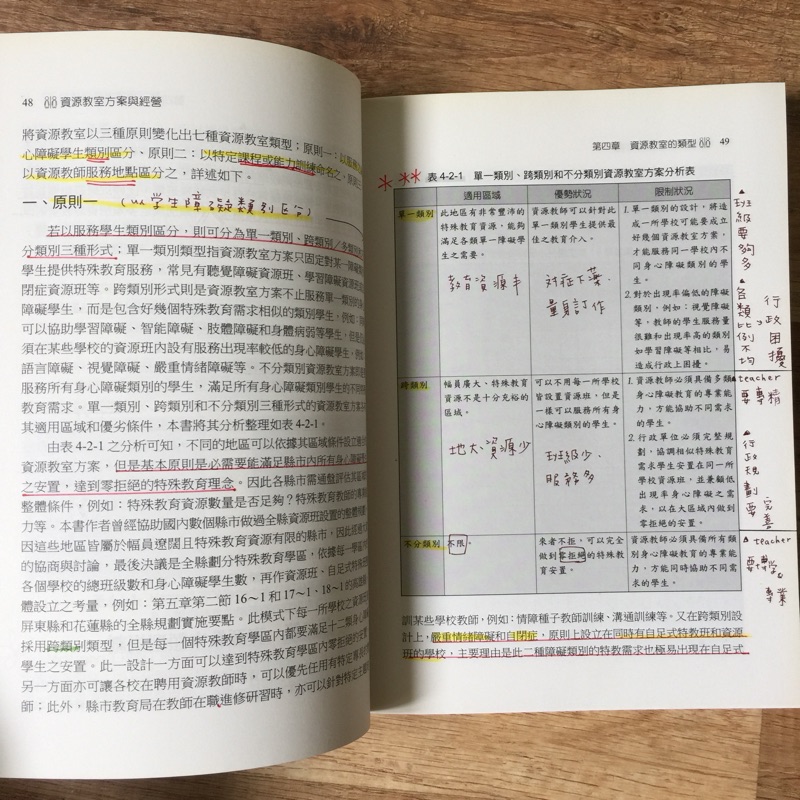 48 資源教室方案與經營
將資源教室以三種原則變化出七種資源教室類型；原則一：以服務
心障礙學生類別區分、原則二：以特定課程或能力訓練命名之、原則三
以資源教師服務地點區分之，詳述如下。
一、原則一 （以學生障礙類別區分）
若以服務學生類別區分，則可分為單一類別、跨類別／多類別
分類別三種形式；單一類別類型指資源教室方案只固定對某一障礙
學生提供特殊教育服務，常見有聽覺障礙資源班、學習障礙資源
閉症資源班等。跨類別形式則是資源教室方案不止服務單一類別的身
障礙學生，而是包含好幾個特殊教育需求相似的類別學生，例如
可以協助學習障礙、智能障礙、肢體障礙和身體病弱等學生，但
須在某些學校的資源班內設有服務出現率較低的身心障礙學生，例
語言障礙、視覺障礙、嚴重情緒障礙等。不分類別資源教室方案
服務所有身心障礙類別的學生，滿足所有身心障礙類別學生的不同
教育需求。單一類別、跨類別和不分類別三種形式的資源教室方案
其適用區域和優劣條件，本書將其分析整理如表 4-2-1。
由表 4-2-1 之分析可知，不同的地區可以依據其區域條件設立
資源教室方案，但是基本原則是必需要能滿足縣市內所有身心障礙
之安置，達到零拒絕的特殊教育理念。因此各縣市需通盤評估其區
整體條件，例如：特殊教育資源數量是否足夠？特殊教育教師的專
力等。本書作者曾經協助國內數個縣市做過全縣資源班設置的整體規劃
因這些地區皆屬於幅員遼闊且特殊教育資源有限的縣市，因此經過
的協商與討論，最後決議是全縣劃分特殊教育學區，依據每一學區
各個學校的總班級數和身心障礙學生數，再作資源班、自足式特殊班
體設立之考量，例如：第五章第二節 16～1 和 17～1、18～1 的
屏東縣和花蓮縣的全縣規劃實施要點。此模式下每一所學校之資源班
採用跨類別類型，但是每一個特殊教育學區內都要滿足十二類身心障礙
學生之安置。此一設計一方面可以達到特殊教育學區內零拒絕的安置
另一方面亦可讓各校在聘用資源教師時，可以優先任用有特定專長
師；此外，縣市教育局在教師在職進修研習時，亦可以針對特定主題
第四章 資源教室的類型 49
＊＊＊ 表 4-2-1 單一類別、跨類別和不分類別資源教室方案分析表
適用區域 優勢狀況 限制狀況
單一類別
此地區有非常豐沛的
特殊教育資源，能夠
滿足各類單一障礙學
生之需要。
教育資源丰
資源教師可以針對此
單一類別學生提供最
佳之教育介入。
對症下葯、
量身訂作
1. 單一類別的設計，將造
成一所學校可能要成立
好幾個資源教室方案，
才能服務同一學校內不
同身心障礙類別的學
生。
2. 對於出現率偏低的障礙
類別，例如：視覺障礙
等，教師的學生服務量
很難和出現率高的類別
如學習障礙等相比，易
造成行政上困擾。
▲班級要夠多
▲各類比例不均
行政困擾
跨類別
幅員廣大、特殊教育
資源不是十分充裕的
區域。
地大、資源少
可以不用每一所學校
皆設置資源班，但是
一樣可以服務所有身
心障礙類別的學生。
班級少、
服務多
1. 資源教師必須具備多類
身心障礙教育的專業能
力，方能協助不同需求
的學生。
2. 行政單位必須完整規
劃，協調相似特殊教育
需求學生安置在同一所
學校資源班，並兼顧低
出現率身心障礙之需
求，以在大區域內做到
零拒絕的安置。
▲teacher
要專精
▲行政規劃要完善
不分類別
不限。
來者不拒，可以完全
做到零拒絕的特殊教
育安置。
資源教師必須具備所有類
別身心障礙教育的專業能
力，方能同時協助不同需
求的學生。
▲teacher
要博學
專業
訓某些學校教師，例如：情障種子教師訓練、溝通訓練等。又在跨類別設
計上，嚴重情緒障礙和自閉症，原則上設立在同時有自足式特教班和資源
班的學校，主要理由是此二種障礙類別的特教需求也極易出現在自足式